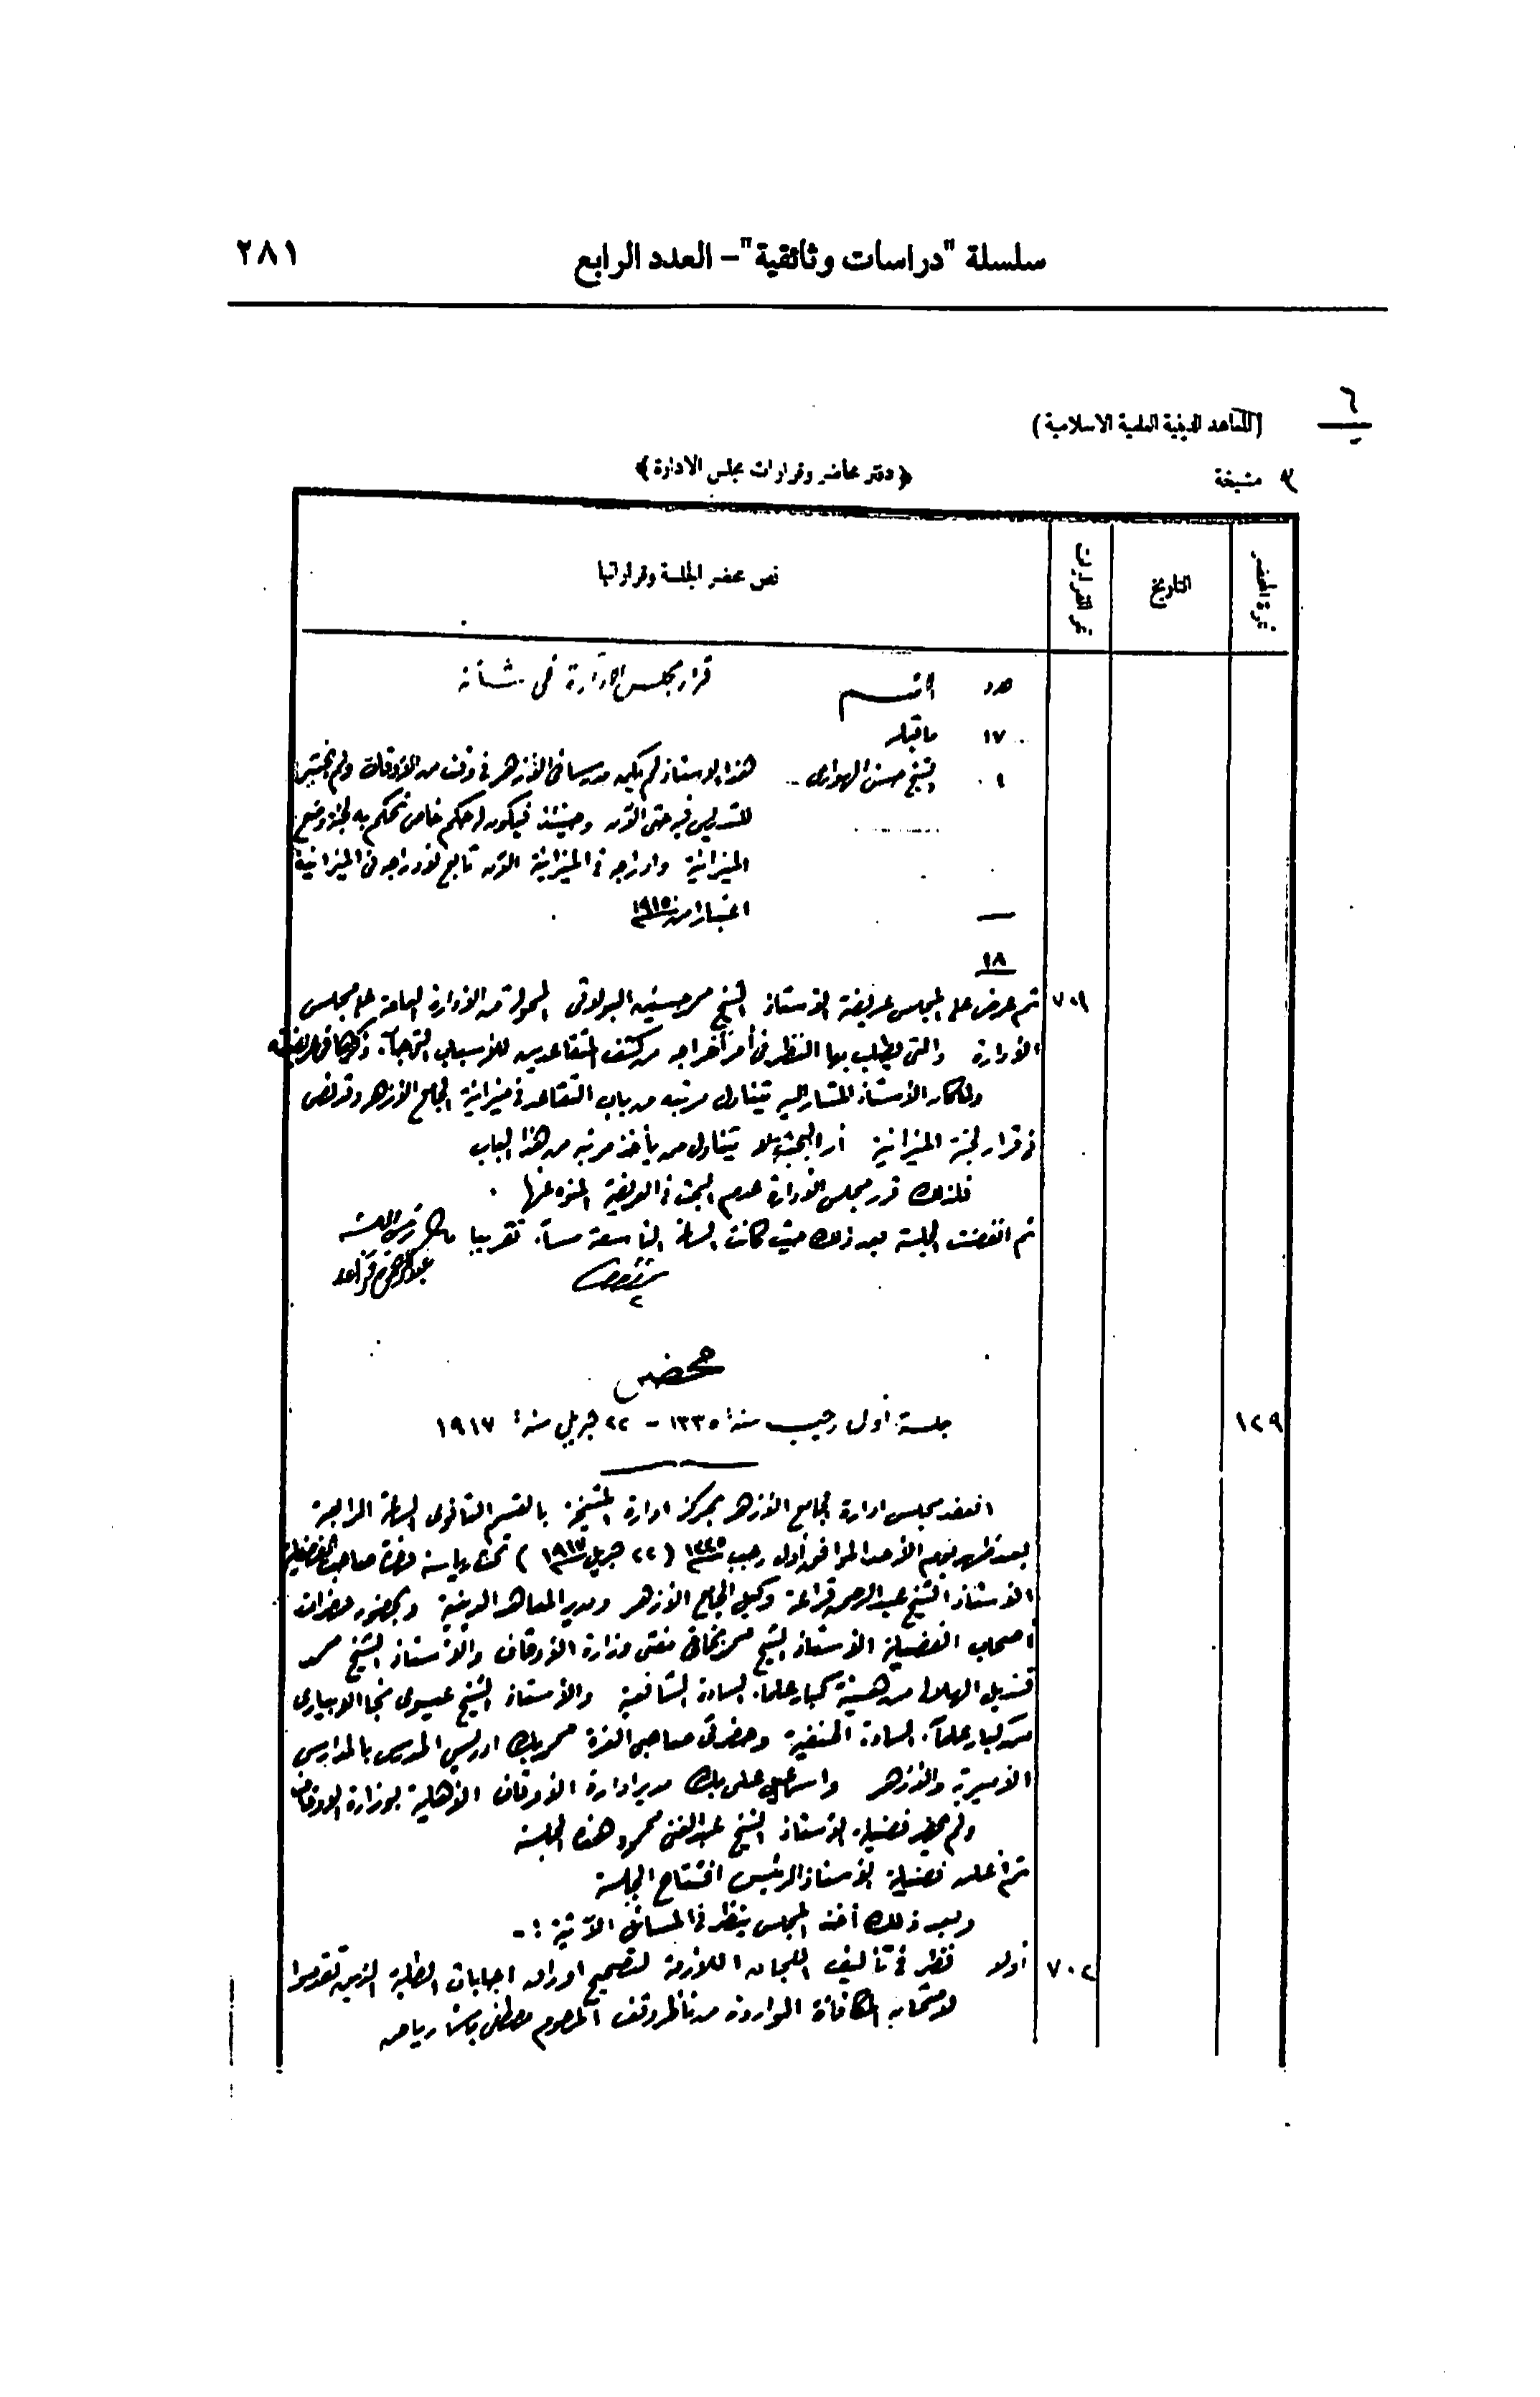 سلسلة "دراسات وثائقية" – العدد الرابع ٢٨١
٦
(المعاهد الدينية العلمية الاسلامية)
٣ مشيخة
﴿دفتر محاضر وقرارات مجلس الادارة﴾
نمرة المحضر
التاريخ
نمر القرارات
نص محضر الجلسة وقراراتها
عدد الاسم قرار مجلس الادارة فى شأنه
١٧ ما قبله
١ الشيخ حسن الهوارى هذا الاستاذ لم يكن مدرسا فى الازهر فى وقت من الاوقات ولم يختبر
للتدريس فيه حتى الآن وحينئذ فيكون له حكم خاص تحكم به لجنة وضع
الميزانية وادراجه فى الميزانية الآن تابع لادراجه فى الميزانية
اعتبارا من سنة ١٩١٥
١٨
٧٠١ ثم عرض على المجلس عريضة الاستاذ الشيخ محمد حسنين البولاقى المحولة من الادارة العامة على مجلس
الادارة والتى يطلب بها النظر فى أمر أخراجه من كشف المتقاعدين للاسباب التى جاء ذكرها فى عريضته
ولما كان الاستاذ المشار اليه يتناول مرتبه من باب التقاعد فى ميزانية الجامع الازهر وقد نص
فى قرار لجنة الميزانية أن البحث لا يتناول من يأخذ مرتبه من هذا الباب
فلذلك قرر مجلس الادارة عدم البحث فى العريضة المنوه عنها .
ثم انفضت الجلسة بعد ذلك حيث كانت الساعة التاسعة مساء تقريبا رئيس الجلسة
عبد الرحمن قراعه
محضر
١٢٩ جلسة أول رجب سنة ١٣٣٥ – ٢٢ ابريل سنة ١٩١٧
انعقد مجلس ادارة الجامع الازهر بمركز ادارة المشيخة بالقسم الثانوى الساعة الرابعة
بعد ظهر يوم الأحد الموافق أول رجب سنة ١٣٣٥ (٢٢ ابريل سنة ١٩١٧) تحت رياسة حضرة صاحب الفضيلة
الاستاذ الشيخ عبد الرحمن قراعة وكيل الجامع الازهر ومدير المعاهد الدينية وبحضور حضرات
أصحاب الفضيلة الاستاذ الشيخ محمد بخاتى مفتى وزارة الاوقاف والاستاذ الشيخ محمد
قنديل الهلالى من هيئة كبار علماء السادة الشافعية والأستاذ الشيخ عيسوى نجا الابيارى
من كبار علماء السادة الحنفية وحضرتى صاحبى العزة محمد بك ادريس المدرس بالمدارس
الاميرية والازهر واسماعيل على بك مدير ادارة الاوقاف الاهلية بوزارة الاوقاف
ولم يحضر فضيلة الاستاذ الشيخ عبد الغنى محمود هذه الجلسة
ثم أعلن فضيلة الاستاذ الرئيس افتتاح الجلسة
وبعد ذلك أخذ المجلس ينظر فى المسائل الآتية :-
٧٠٢ أولا نظر فى تأليف اللجان اللازمة لتصحيح اوراق اجابات الطلبة الذين تقدموا
لامتحان المكافأة الواردة من ناظر وقف المرحوم مصطفى باشا رياض